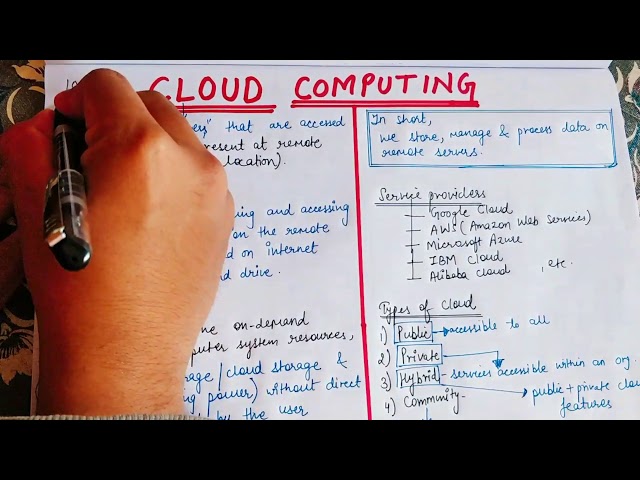 CLOUD COMPUTING
that are accessed
present at remote
location).
and accessing
on the remote
on internet
drive.
on-demand
system resources,
/cloud storage &
power) without direct
by the user
In short,
we store, manage & process data on
remote servers.
Service providers
Google Cloud
AWS (Amazon Web Services)
Microsoft Azure
IBM Cloud
Alibaba cloud, etc.
Types of Cloud
1) Public → accessible to all
2) Private
3) Hybrid - services accessible within an org.
public + private cloud
features
4) Community -